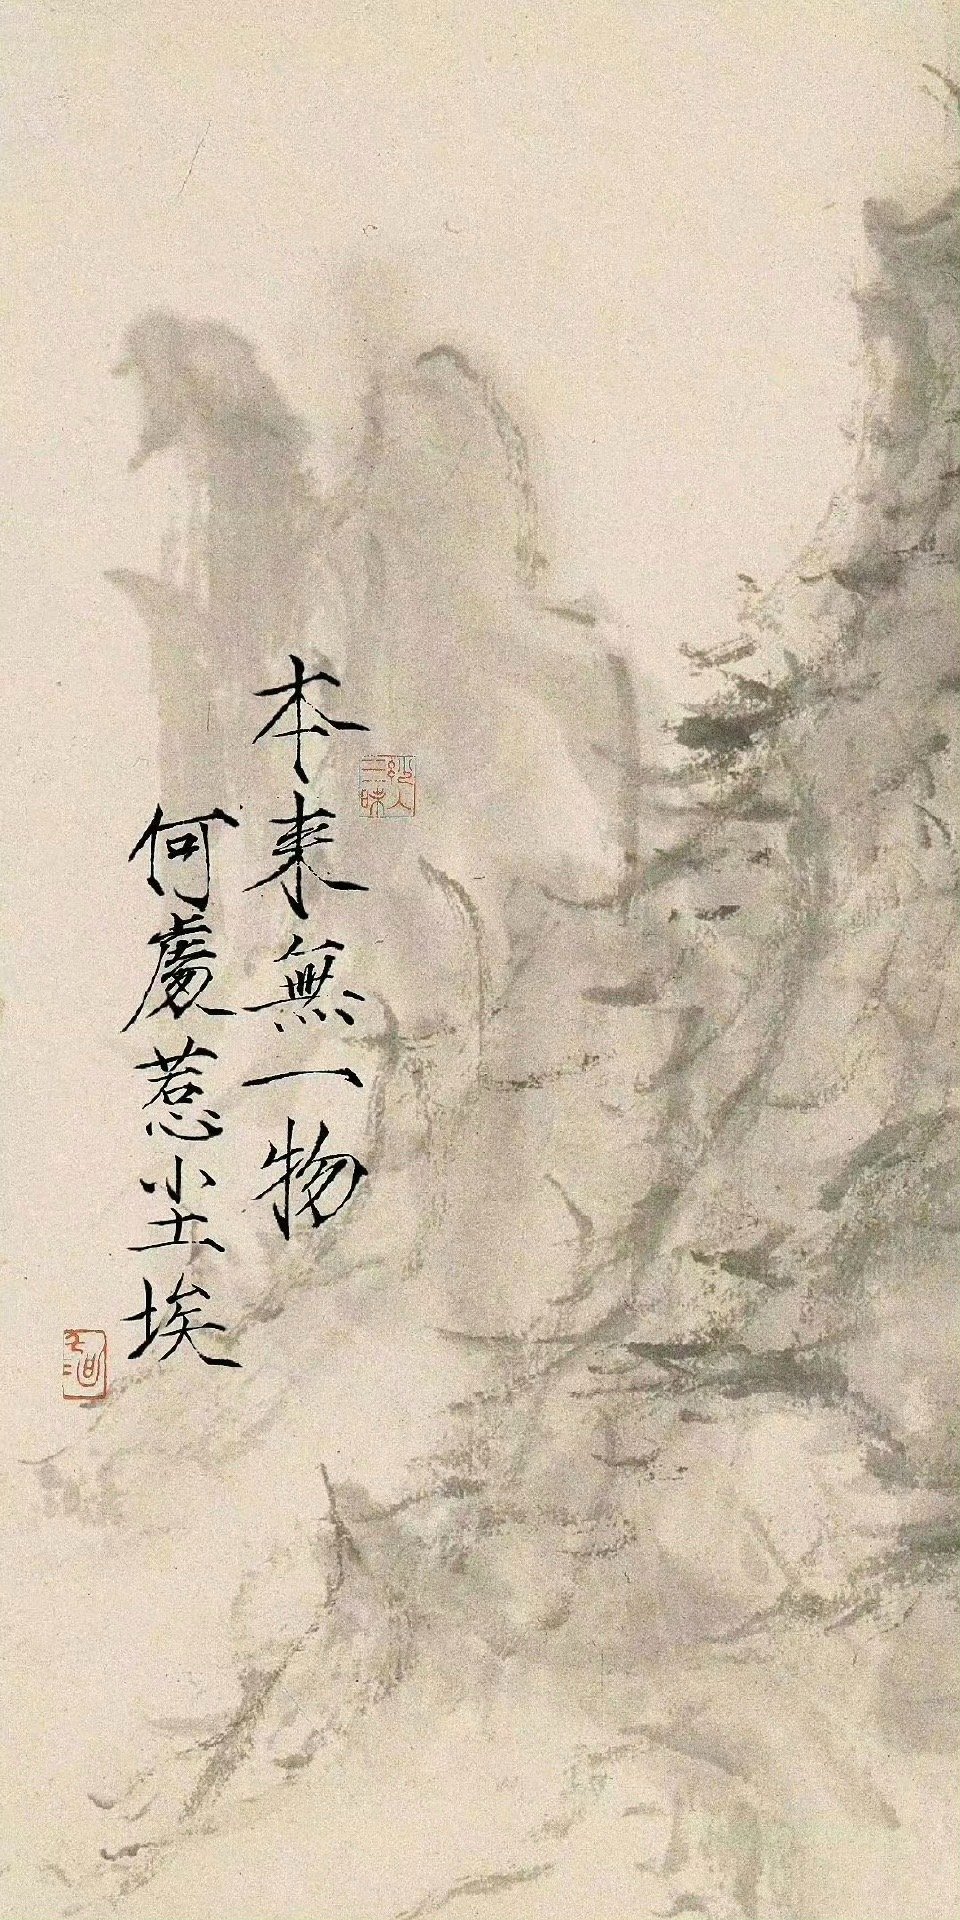 本来無一物
何處惹尘埃